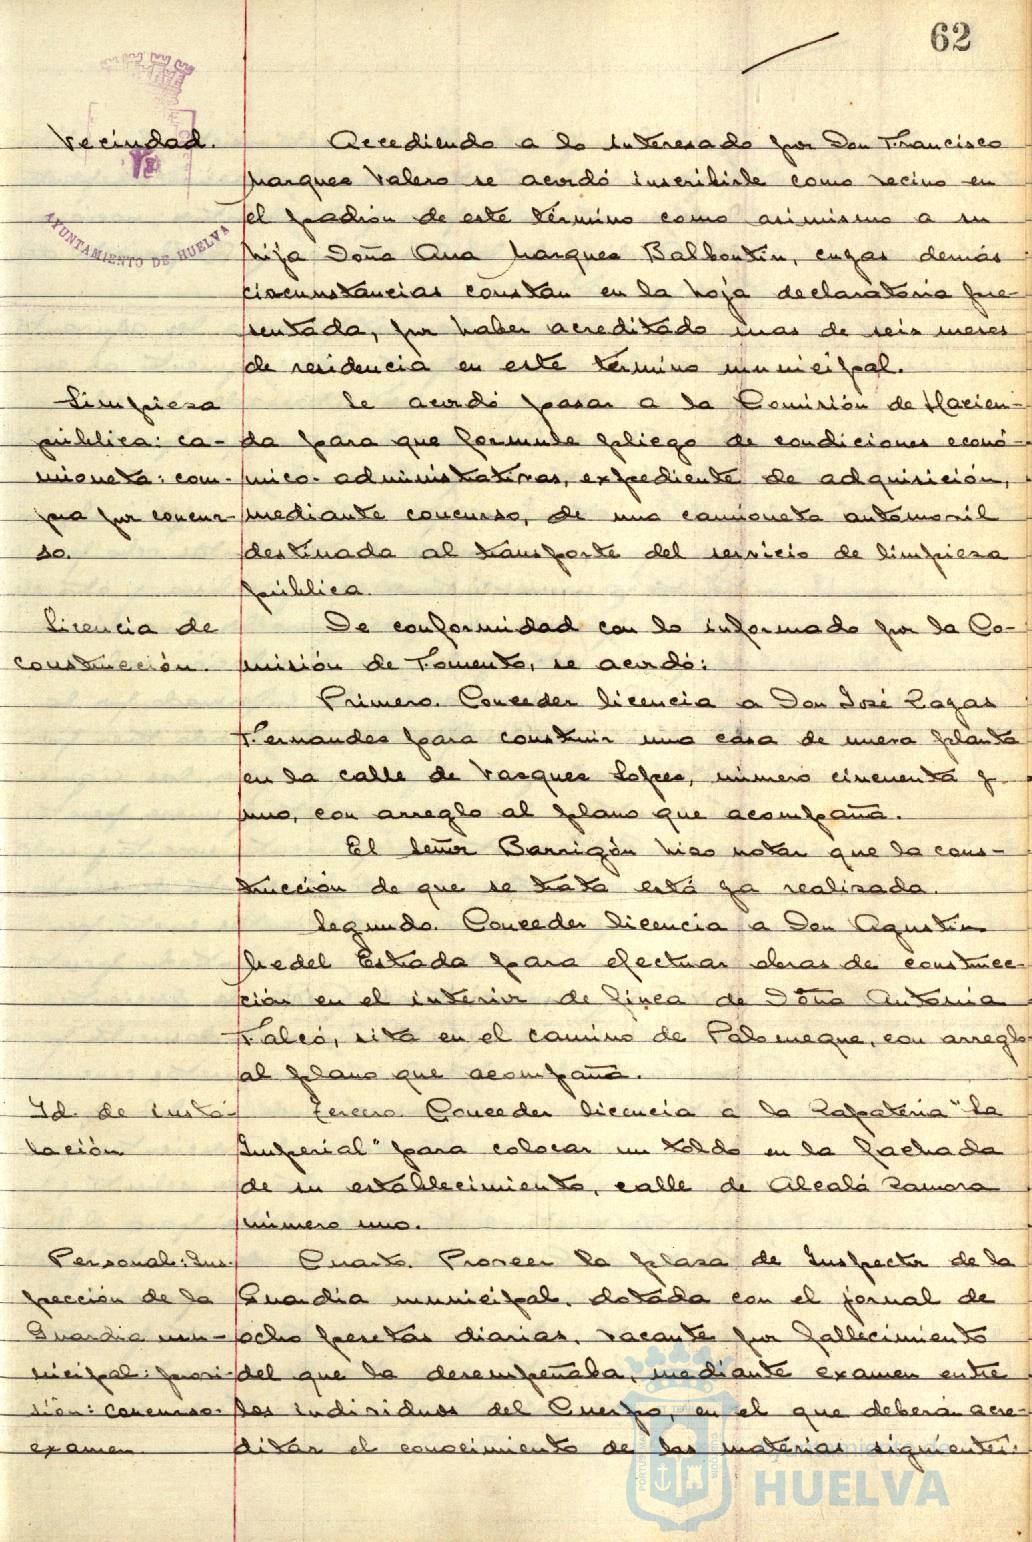 62
Vecindad.
AYUNTAMIENTO DE HUELVA
Accediendo a lo interesado por Don Francisco
Marquez Valero se acordó inscribirle como vecino en
el padrón de este término como asimismo a su
hija Doña Ana Marquez Balbontin, cuyas demás
circunstancias constan en la hoja declaratoria pre-
sentada, por haber acreditado mas de seis meses
de residencia en este término municipal.
Limpieza
pública: ca-
mioneta: com-
pra por concur-
so.
Se acordó pasar a la Comisión de Hacien-
da para que formule pliego de condiciones econó-
mico-administrativas, expediente de adquisición,
mediante concurso, de una camioneta automovil
destinada al transporte del servicio de limpieza
pública.
Licencia de
construcción.
De conformidad con lo informado por la Co-
misión de Fomento, se acordó:
Primero. Conceder licencia a Don José Pazas
Fernandez para construir una casa de nueva planta
en la calle de Vazquez Lopez, número cincuenta y
uno, con arreglo al plano que acompaña.
El Señor Barrigón hizo notar que la cons-
trucción de que se trata está ya realizada.
Segundo. Conceder licencia a Don Agustin
Medel Estrada para efectuar obras de construc-
ción en el interior de finca de Doña Antonia
Falcó, sita en el camino de Palomeque, con arreglo
al plano que acompaña.
Id. de insta-
lación
Tercero. Conceder licencia a la Zapateria "La
Imperial" para colocar un toldo en la fachada
de su establecimiento, calle de Alcalá Zamora
número uno.
Personal: Ins-
pección de la
Guardia mu-
nicipal: provi-
sión: concurso-
examen.
Cuarto. Proveer la plaza de Inspector de la
Guardia municipal, dotada con el jornal de
ocho pesetas diarias, vacante por fallecimiento
del que la desempeñaba, mediante examen entre
los individuos del Cuerpo, en el que deberán acre-
ditar el conocimiento de las materias siguientes:
Ayuntamiento de
HUELVA